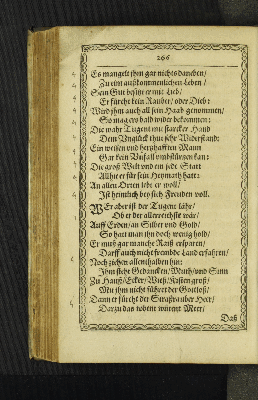 266
Es mangelt jhm gar nichts darneben /
Zu eim außkommenlichen Leben /
Sein Gut besitzt er mit Lieb /
Er fürcht kein Rauber / oder Dieb:
Wird jhm auch all sein Haab genommen /
So mag ers bald wider bekommen:
Die wahr Tugent mit starcker Hand
Dem Vnglück thut sehr Widerstand:
Ein weisen und hertzhafften Mann
Gar kein Vnfall vmbstürtzen kan:
Die groß Welt vnd ein jede Statt
All hie er für sein Heymath hatt:
An allen Orten lebt er woll /
Ist heimlich bey sich Frewden voll.
WEr aber ist der Tugent lähr /
Ob er der allerreichste wär /
Auff Erden / an Silber vnd Gold /
So hatt man jhn doch wenig hold /
Er muß gar manche Raiß ersparen /
Darff auch nicht frembde Land erfahren /
Noch ziehen allenthalben hin:
Jhm steht Gedancken / Muth / vnd Sinn
Zu Hauß / Ecker / Wiß / Kisten groß /
Mit jhm nicht führet der Gottloß /
Dann er fürcht der Straßrauber Heer /
Darzu das tobent wütent Meer /
Daß